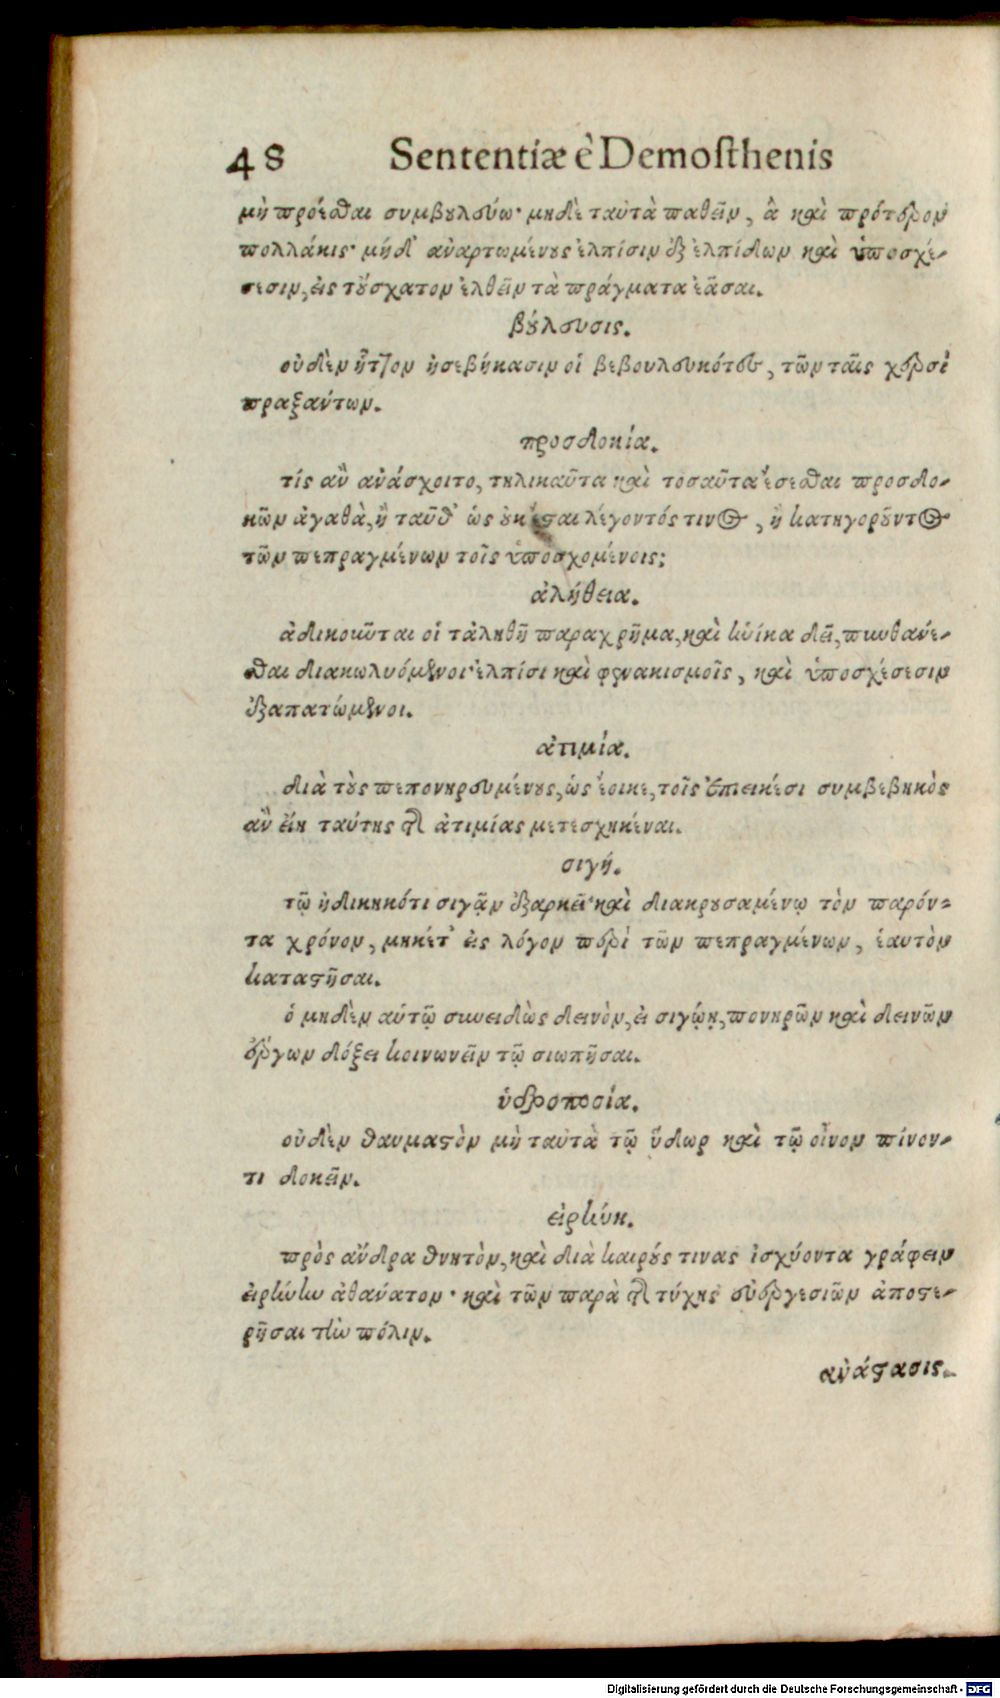 48 Sententiæ è Demosthenis
μὴ προέσθαι συμβουλεύω· μηδὲ ταὐτὰ παθεῖν, ἃ καὶ πρότερον
πολλάκις· μήδ' ἀναρτωμένους ἐλπίσιν ἐξ ἐλπίδων καὶ ὑποσχέ-
σεσιν, εἰς τοὔσχατον ἐλθεῖν τὰ πράγματα ἐᾶσαι.
βούλευσις.
οὐδὲν ἧττον ἠσεβήκασιν οἱ βεβουλευκότες, τῶν ταῖς χερσὶ
πραξάντων.
προσδοκία.
τίς ἂν ἀνάσχοιτο, τηλικαῦτα καὶ τοσαῦτα ἔσεσθαι προσδο-
κῶν ἀγαθὰ, ἢ ταῦθ' ὡς οὐκ ἔσται λέγοντός τινος, ἢ κατηγοροῦντος
τῶν πεπραγμένων τοῖς ὑποσχομένοις;
ἀλήθεια.
ἀδικοῦνται οἱ τἀληθῆ παραχρῆμα, καὶ ἡνίκα δεῖ, πυνθανέ-
σθαι διακωλυόμενοι ἐλπίσι καὶ φενακισμοῖς, καὶ ὑποσχέσεσιν
ἐξαπατώμενοι.
ἀτιμία.
διὰ τοὺς πεπονηρευμένους, ὡς ἔοικε, τοῖς ἐπιεικέσι συμβεβηκὸς
ἂν εἴη ταύτης τῆς ἀτιμίας μετεσχηκέναι.
σιγή.
τῷ ἠδικηκότι σιγᾷν ἐξαρκεῖ· καὶ διακρουσαμένῳ τὸν παρόν-
τα χρόνον, μηκέτ' εἰς λόγον περὶ τῶν πεπραγμένων, ἑαυτὸν
καταστῆσαι.
ὁ μηδὲν αὑτῷ συνειδὼς δεινὸν, εἰ σιγῴη, πονηρῶν καὶ δεινῶν
ἔργων δόξει κοινωνεῖν τῷ σιωπῆσαι.
ὑδροποσία.
οὐδὲν θαυμαστὸν μὴ ταὐτὰ τῷ ὕδωρ καὶ τῷ οἶνον πίνον-
τι δοκεῖν.
εἰρήνη.
πρὸς ἄνδρα θνητὸν, καὶ διὰ καιρούς τινας ἰσχύοντα γράφειν
εἰρήνην ἀθάνατον· καὶ τῶν παρὰ τῆς τύχης εὐεργεσιῶν ἀποστε-
ρῆσαι τὴν πόλιν.
ἀνάστασις.
Digitalisierung gefördert durch die Deutsche Forschungsgemeinschaft - DFG